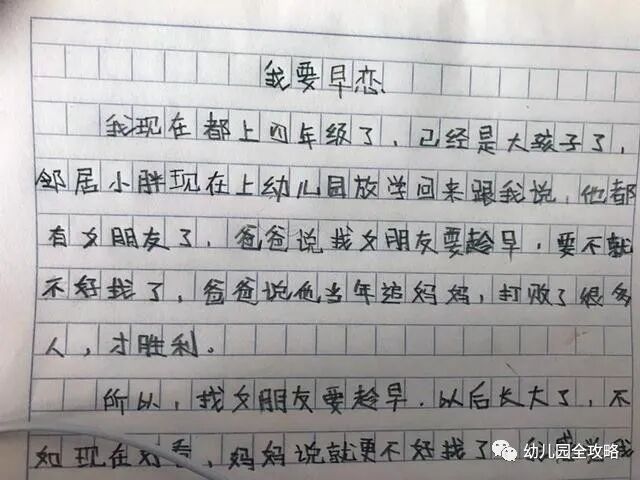 我要早恋
我现在都上四年级了，已经是大孩子了，
邻居小胖现在上幼儿园放学回来跟我说，他都
有女朋友了，爸爸说找女朋友要趁早，要不就
不好找了，爸爸说他当年追妈妈，打败了很多
人，才胜利。
所以，找女朋友要趁早．以后长大了，不
如现在好看，妈妈说就更不好找了
幼儿园全攻略